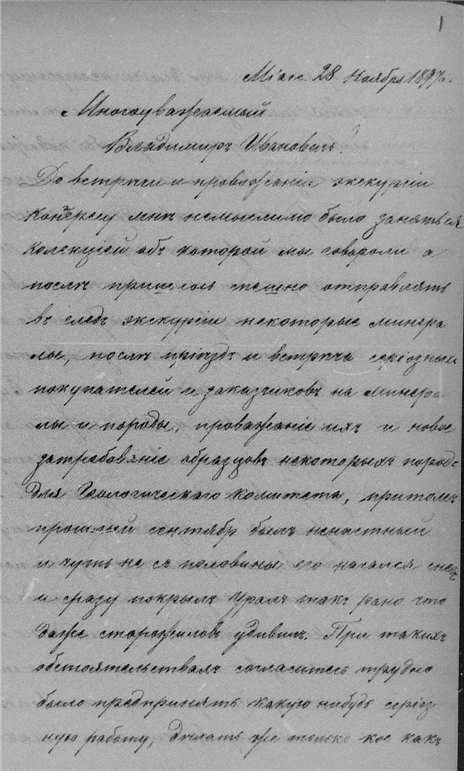 1
Міасс 28 Ноября 1897 г.
Многоуважаемый
Владимиръ Ивановичъ!
До встрѣчи и провожанія экскурсіи
Конгресу мнѣ немыслимо было заняться
колекціей объ которой мы говороли а
послѣ пришлось тешно отправлять
въ следъ экскурсіи некоторые минера
лы, послѣ пріездъ и встрѣча серіозныхъ
покупателей и заказчиковъ на минера
лы и породы, проважаніе ихъ и новое
затребованіе образцовъ некоторыхъ породъ
для Геологическаго комитета, притомъ
прошлый сентябрь былъ ненастный
и чуть не съ половины его начался снегъ
и сразу покрылъ Уралъ такъ рано что
даже сторожиловъ удивилъ. При такихъ
обстоятельствахъ согласитесь трудно
было предпринять какую нибудь серіоз
ную работу, дѣлать же только кое какъ